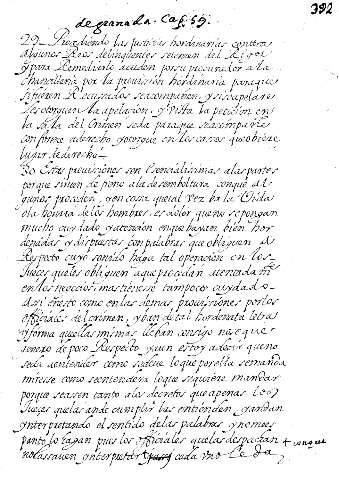 de granada. Cap. 59.
392
29 Procediendo las justicias hordinarias contra
algunos Reos delinquentes se temen del Rigor
y para Remediarle acuden por su procurador a la
chancilleria por la provission hordinaria para que
si fueren Recusados se acompañen, y si apelare
les otorguen la apelacion, y vista la peticion en
la sala del Crimen se da para que se acompañe
conforme a derecho y otorgue en los casos que obiere
lugar de derecho
30 Estas provisiones son esencialissimas a las partes
porque sirven de freno a la desemboltura con que al
gunos proceden, y en cosa que tal vez ba la Vida
o la honrra de los hombres. es dolor que no se pongan
mucho cuydado y atencion en que bayan bien hor
denadas y dispuestas con palabras que obliguen a
Respecto cuyo sonido haga tal operacion en los
Jueces que les obliguen a que procedan
en los negocios, mas tienese tampoco cuydado
assi en esto como en las demas provissiones por los
officiales del crimen, y ban de tal hordenata letra
y forma que ellas mismas lleban consigo no se que
sonrojo de poco Respecto y aun estoy a decir que no
se da a entender como se deve lo que por ella se manda
mirese como se entendera lo que se quiere mandar
porque se assen tanto a los decretos que apenas los
Jueces que las an de cumplir las entienden y andan
ynterpretando el sentido de las palabras, y no me es
panto lo hagan pues los officiales que las despachan + aunque
no las saven ynterpretar cada uno le da